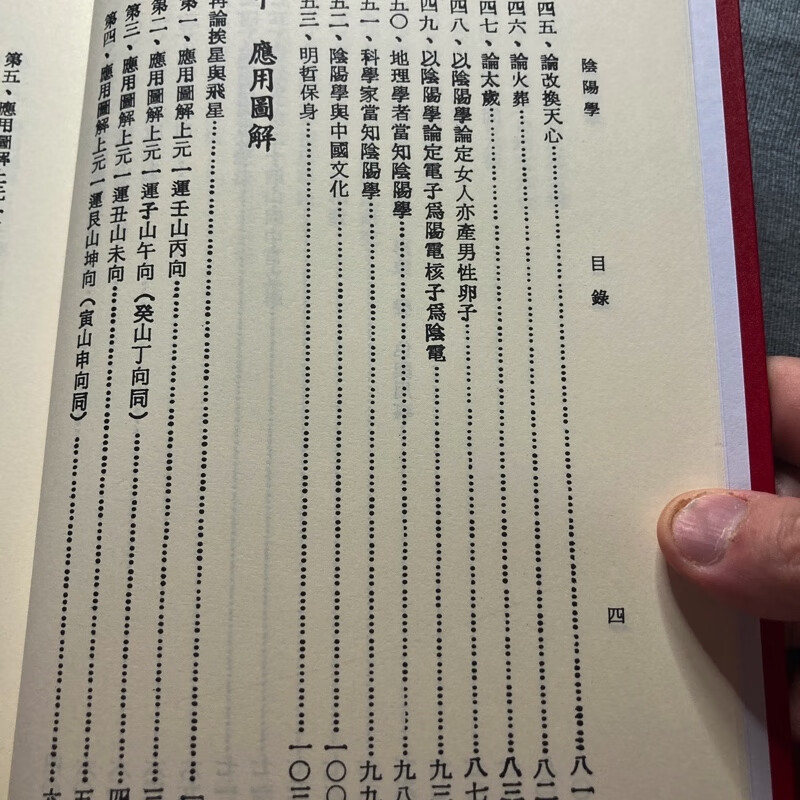 陰陽學
目錄
四
四五、論改換天心……八一
四六、論火葬……八二
四七、論太歲……八三
四八、以陰陽學論定女人亦產男性卵子……八七
四九、以陰陽學論定電子爲陽電核子爲陰電……九三
五〇、地理學者當知陰陽學……九八
五一、科學家當知陰陽學……九九
五二、陰陽學與中國文化……一〇〇
五三、明哲保身……一〇三
應用圖解
再論挨星與飛星……
第一、應用圖解上元一運壬山丙向……一
第二、應用圖解上元一運子山午向（癸山丁向同）……三
第三、應用圖解上元一運丑山未向……四
第四、應用圖解上元一運艮山坤向（寅山申向同）……五
第五、應用圖解上元一